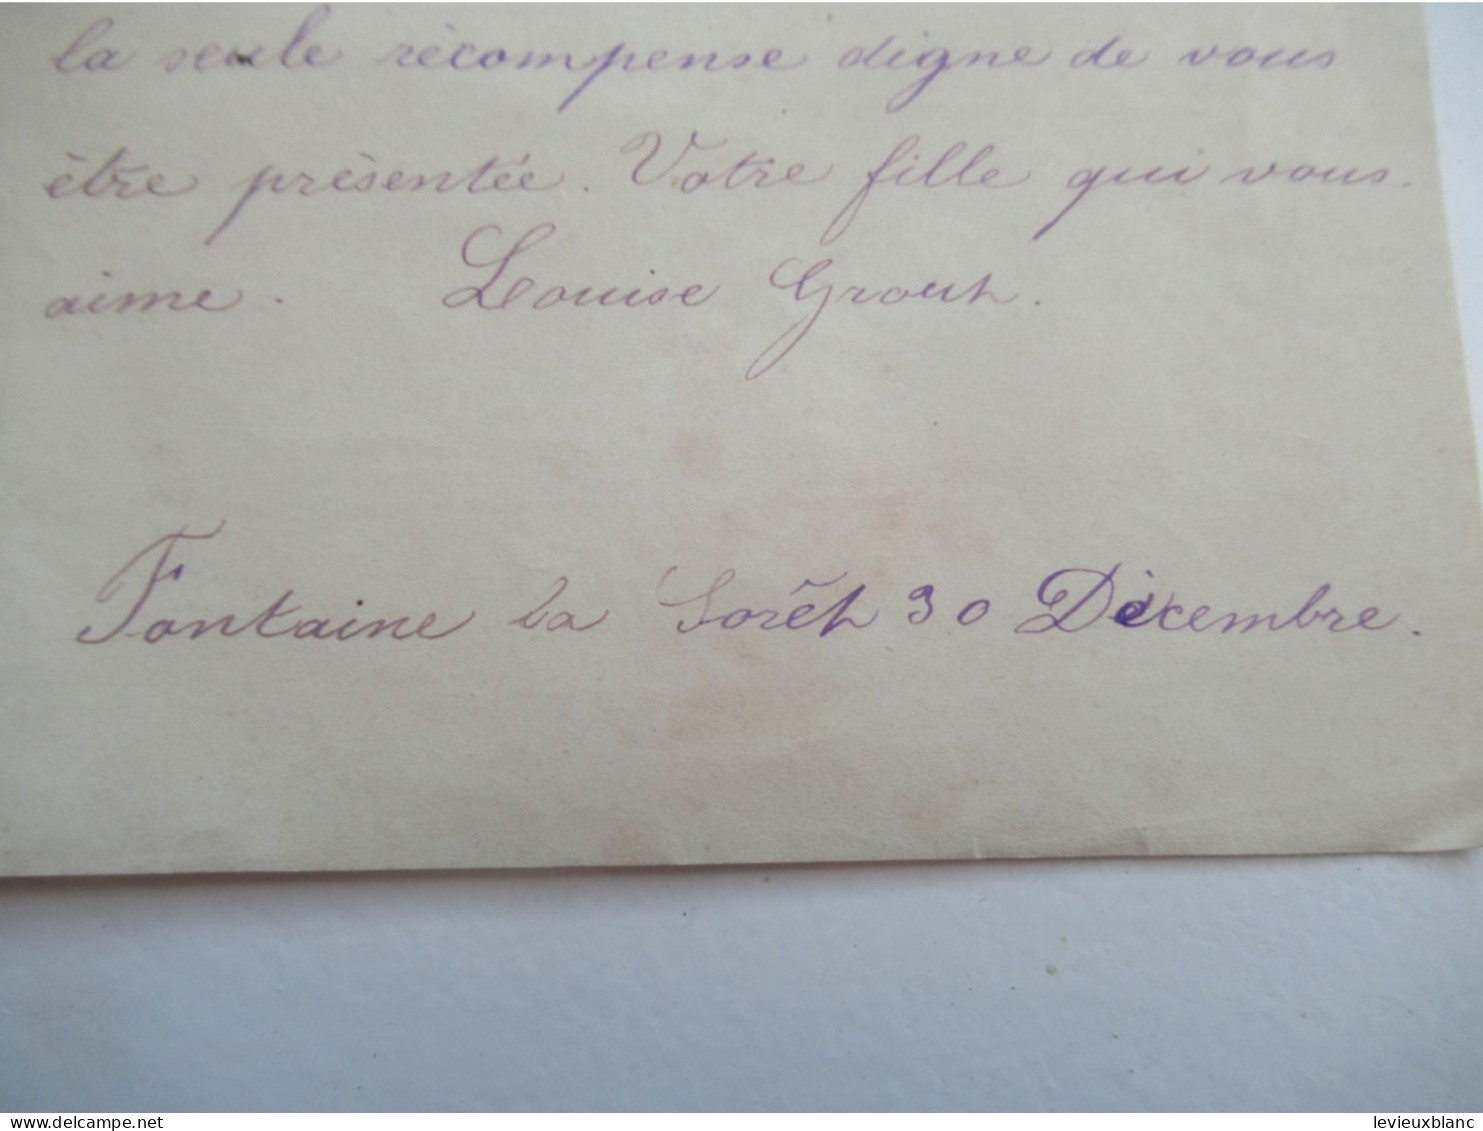 la seule récompense digne de vous
être présentée. Votre fille qui vous
aime. Louise Grout.
Fontaine la Sorêt 30 Décembre.
delcampe.net
levieuxblanc